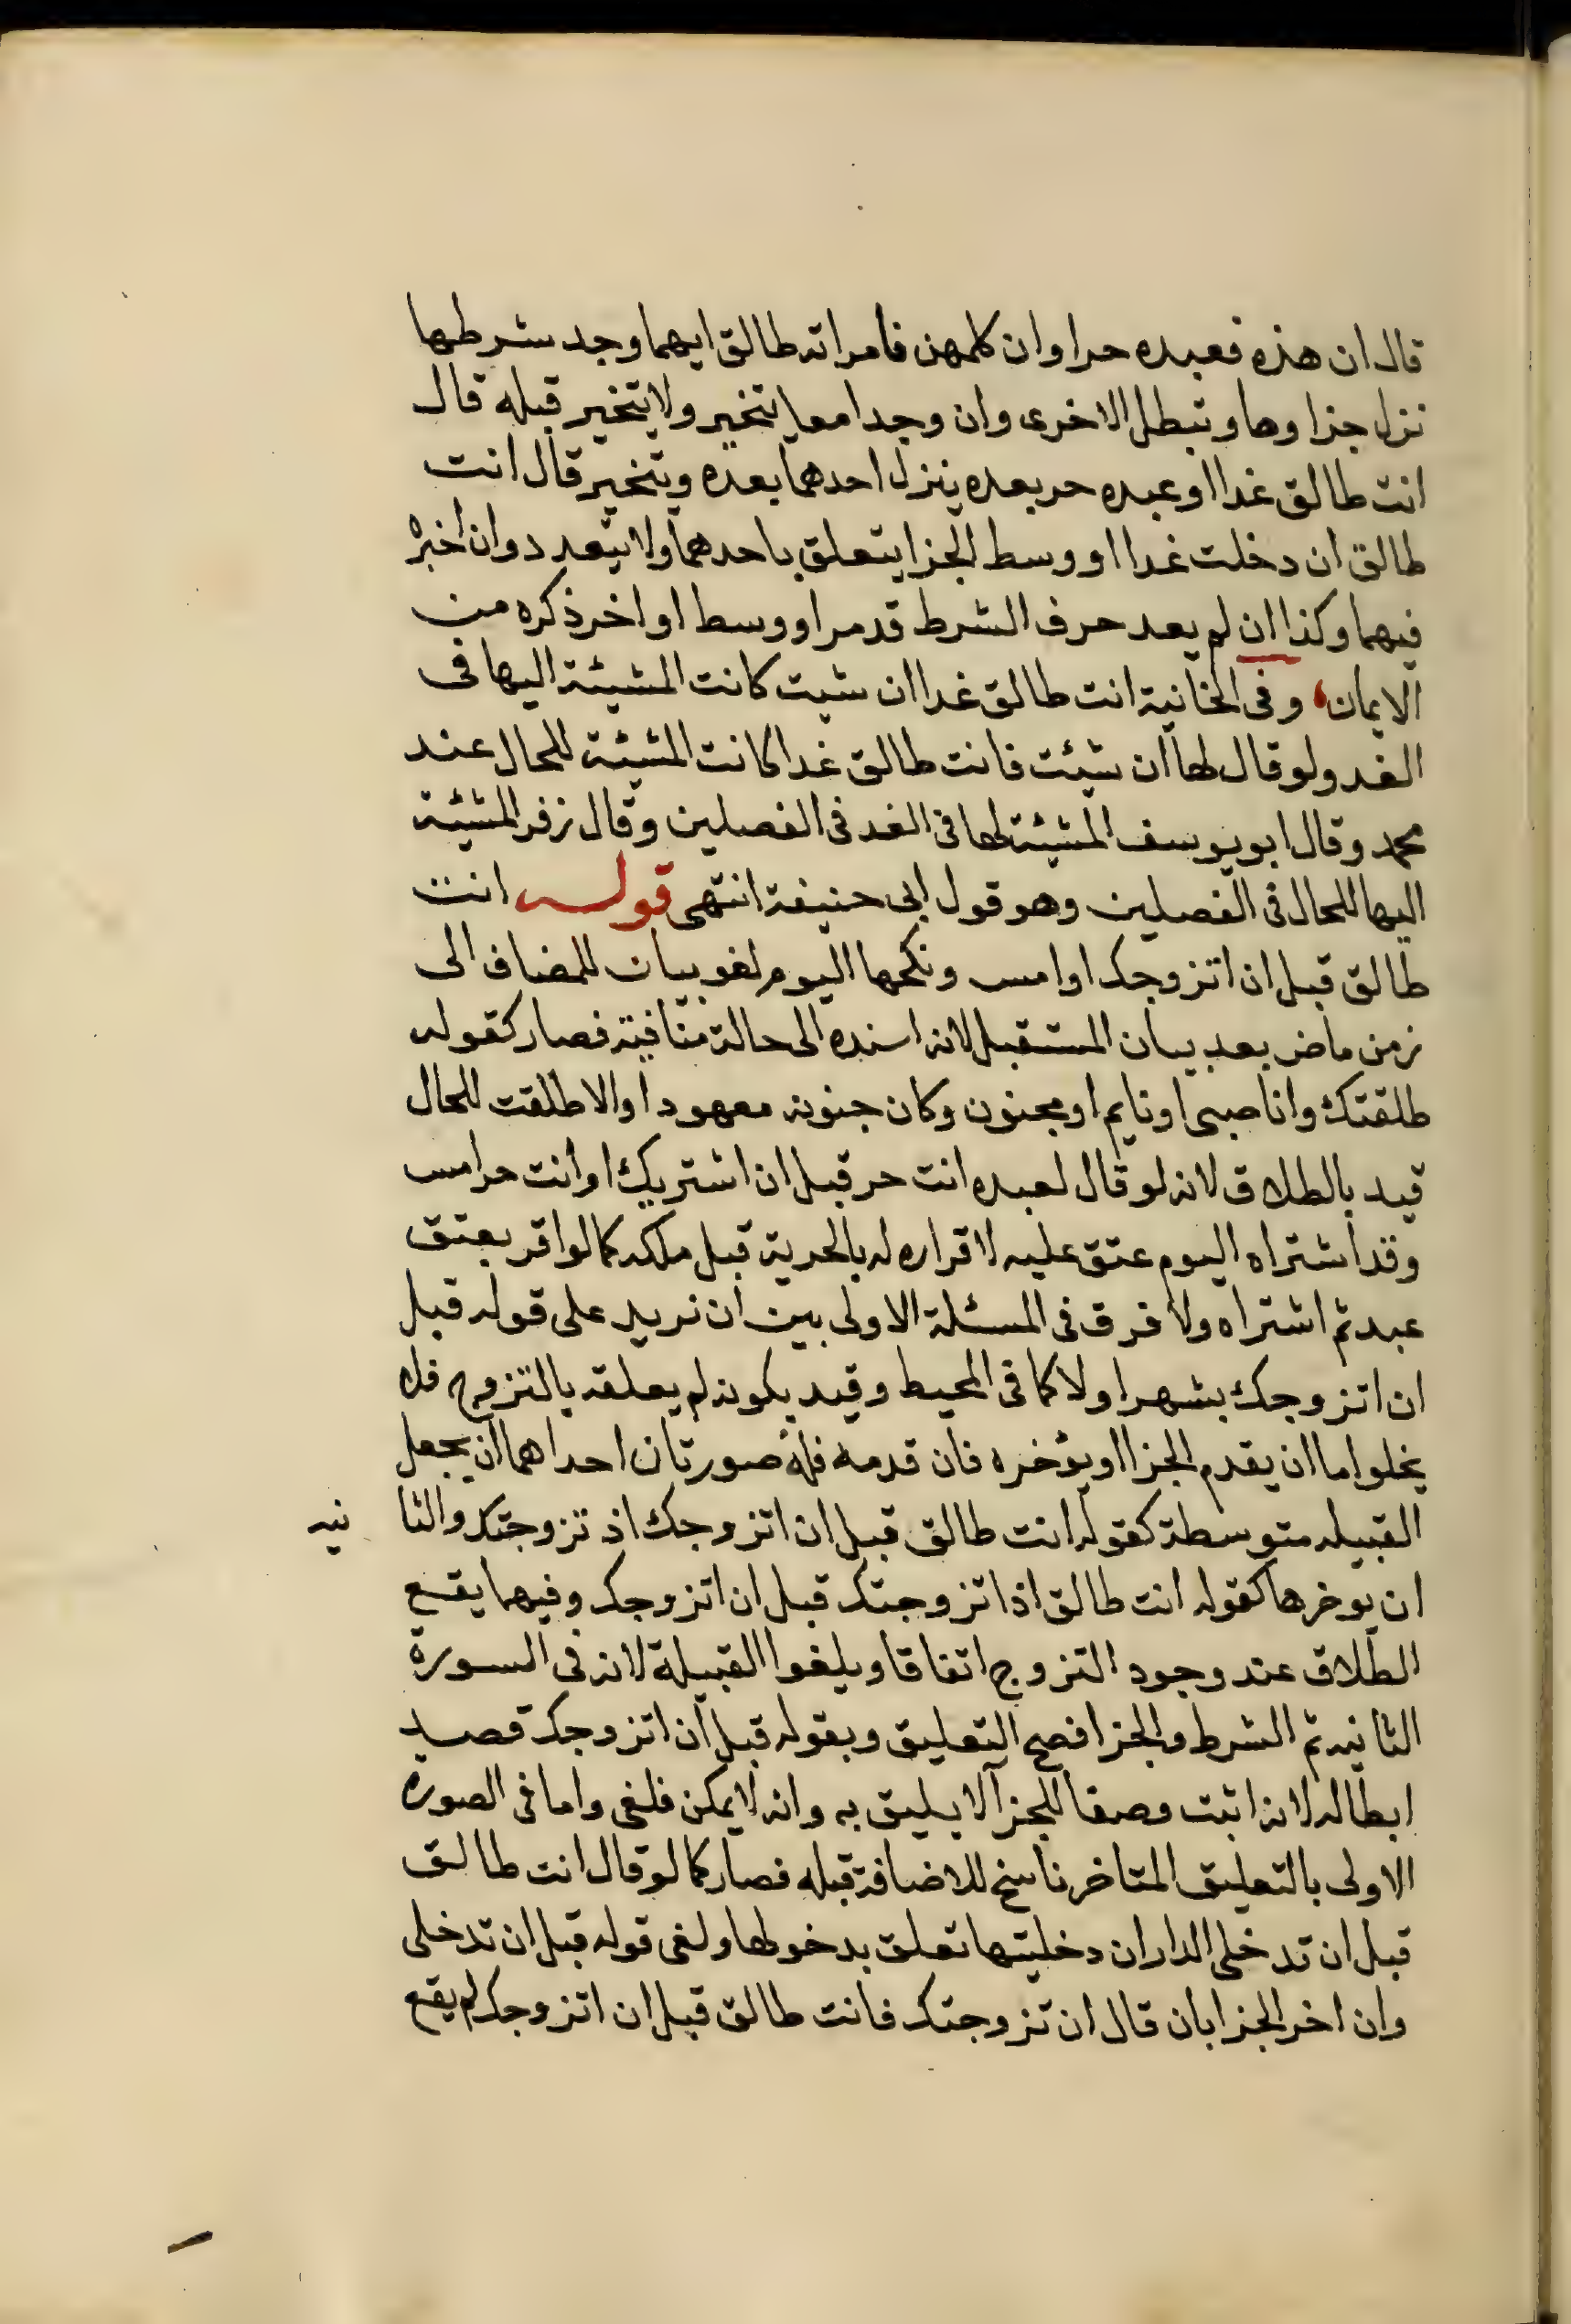 قال ان هذه فعبده حرا وان كلمهن فامراته طالق ايهما وجد شرطها
نزل جزاوها وتبطل الاخرى وان وجدا معا يتخير ولا يتخير قبله قال
انت طالق غدا او عبده حر بعده ينزل احدهما بعده ويتخير قال انت
طالق ان دخلت غدا او وسط الجزا يتعلق باحدهما ولا يتعدد وان اخبره
فيهما وكذا ان لم يعد حرف الشرط قدمر او وسط او اخر ذكره من
الايمان، وفى الخانية انت طالق غدا ان شيت كانت المشيئة اليها فى
الغد ولو قال لها ان شيئت فانت طالق غدا كانت المشيئة للحال عند
محمد وقال ابو يوسف المشيئة لها فى الغد فى الفصلين وقال زفر المشيئة
اليها للحال فى الفصلين وهو قول ابى حنيفة انتهى قوله انت
طالق قبل ان اتزوجك او امس ونكحها اليوم لغو بيان للمضاف الى
زمن ماض بعد بيان المستقبل لانه اسنده الى حالة منافية فصار كقوله
طلقتك وانا صبى او نايم او مجنون وكان جنونه معهودا والا طلقت للحال
قيد بالطلاق لانه لو قال لعبده انت حر قبل ان اشتريك او انت حر امس
وقد اشتراه اليوم عتق عليه لاقراره له بالحرية قبل ملكه كما لو اقر بعتق
عبد ثم اشتراه ولا فرق فى المسئلة الاولى بين ان نريد على قوله قبل
ان اتزوجك بشهر او لا كما فى المحيط وقيد بكونه لم يعلقه بالتزوج فلا
يخلوا ما ان يقدم الجزا او يؤخره فان قدمه فله صورتان احداهما ان يجعل
القبيله متوسطة كقوله انت طالق قبل ان اتزوجك اذ تزوجتك والثا نيه
ان يوخرها كقوله انت طالق اذا تزوجتك قبل ان اتزوجك وفيهما يقع
الطلاق عند وجود التزوج اتفاقا ويلغوا القبيلة لانه فى السورة
الثانيه ثم الشرط والجزا فصح التعليق وبقوله قبل ان اتزوجك قصد
ابطاله لانه اثبت وصفا للجزآ لا يليق به وانه لا يمكن فلغى واما فى الصوره
الاولى بالتعليق المتاخر ناسخ للاضافة قبله فصار كما لو قال انت طالق
قبل ان تدخلى الدار ان دخليتها تعلق بدخولها ولغى قوله قبل ان تدخلى
وان اخر الجزا بان قال ان تزوجتك فانت طالق قبل ان اتزوجك لم يقع